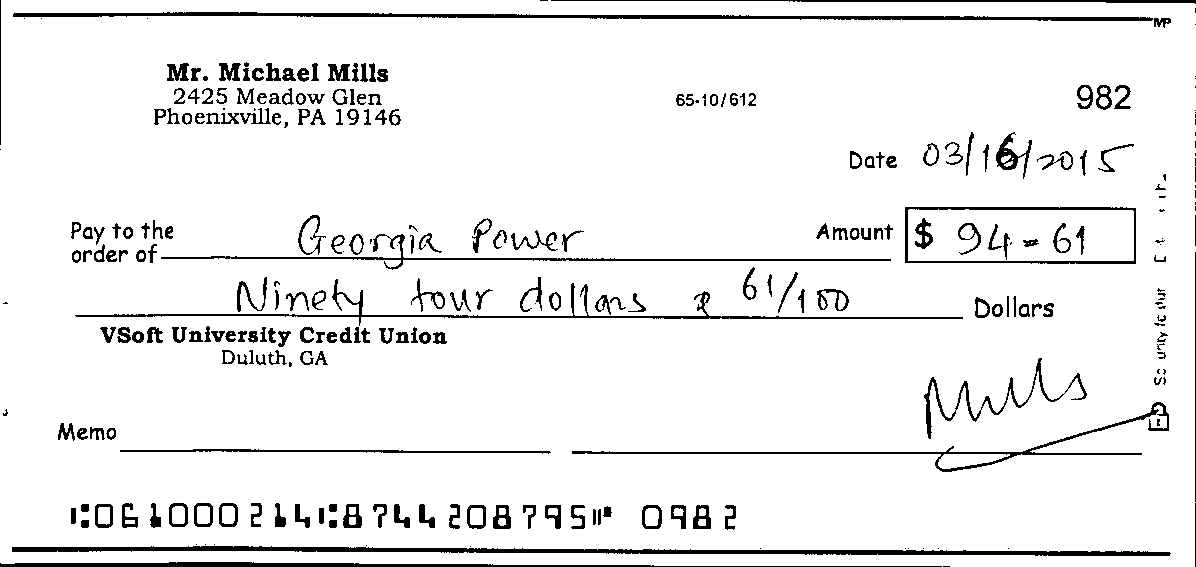 MP
Mr. Michael Mills
2425 Meadow Glen
Phoenixville, PA 19146
65-10/612
982
Date 03/16/2015
Pay to the
order of Georgia Power
Amount $ 94-61
Ninety four dollars & 61/100 Dollars
VSoft University Credit Union
Duluth, GA
Mills
Memo
⑆061000214⑆8744208795⑈ 0982